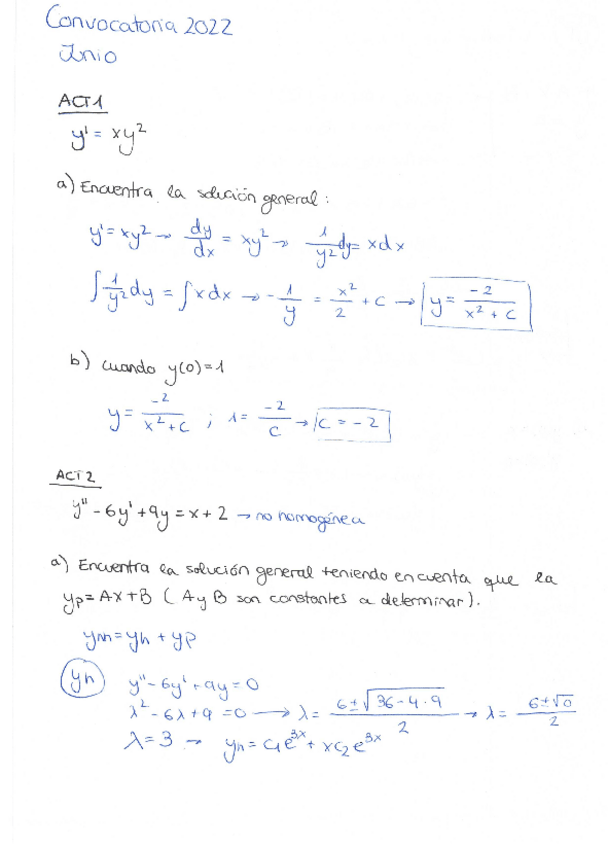 Convocatoria 2022
Junio
ACT 1
y' = xy²
a) Encuentra la solución general:
y' = xy² → dy/dx = xy² → 1/y² dy = x dx
∫ 1/y² dy = ∫ x dx → -1/y = x²/2 + C → y = -2/(x² + C)
b) cuando y(0)=1
y = -2/(x²+C) ; 1 = -2/C → C = -2
ACT 2
y'' - 6y' + 9y = x + 2 → no homogénea
a) Encuentra la solución general teniendo en cuenta que la
yp = Ax + B ( A y B son constantes a determinar).
ym = yh + yp
yh y'' - 6y' + 9y = 0
λ² - 6λ + 9 = 0 → λ = (6 ± √(36 - 4·9))/2 → λ = (6 ± √0)/2
λ = 3 → yh = c₁e^3x + xc₂e^3x